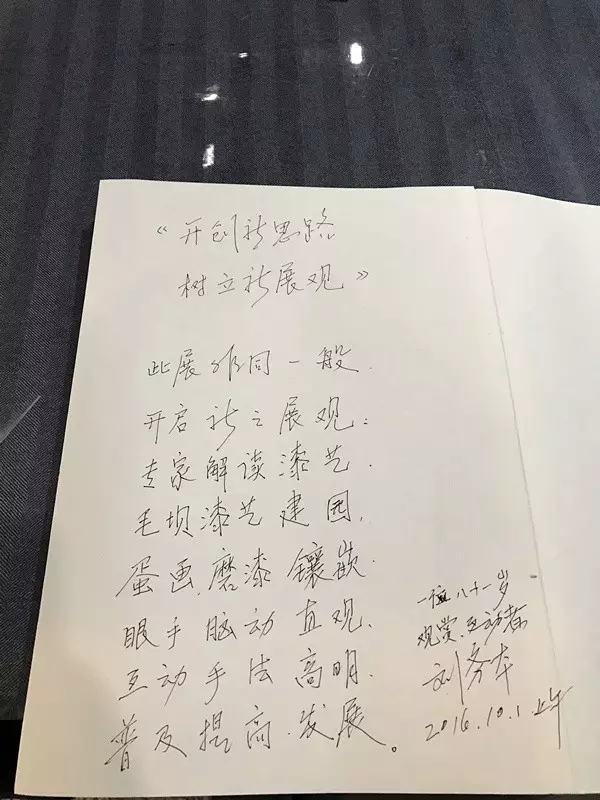 《开创新思路
树立新展观》
此展非同一般.
开启新之展观:
专家解读漆艺.
毛坝漆艺建园,
蛋画、磨漆镶嵌.
眼手脑动直观.
互动手法高明.
普及提高.发展。
一位八十一岁
观赏、互动者
刘务本
2016.10.1上午